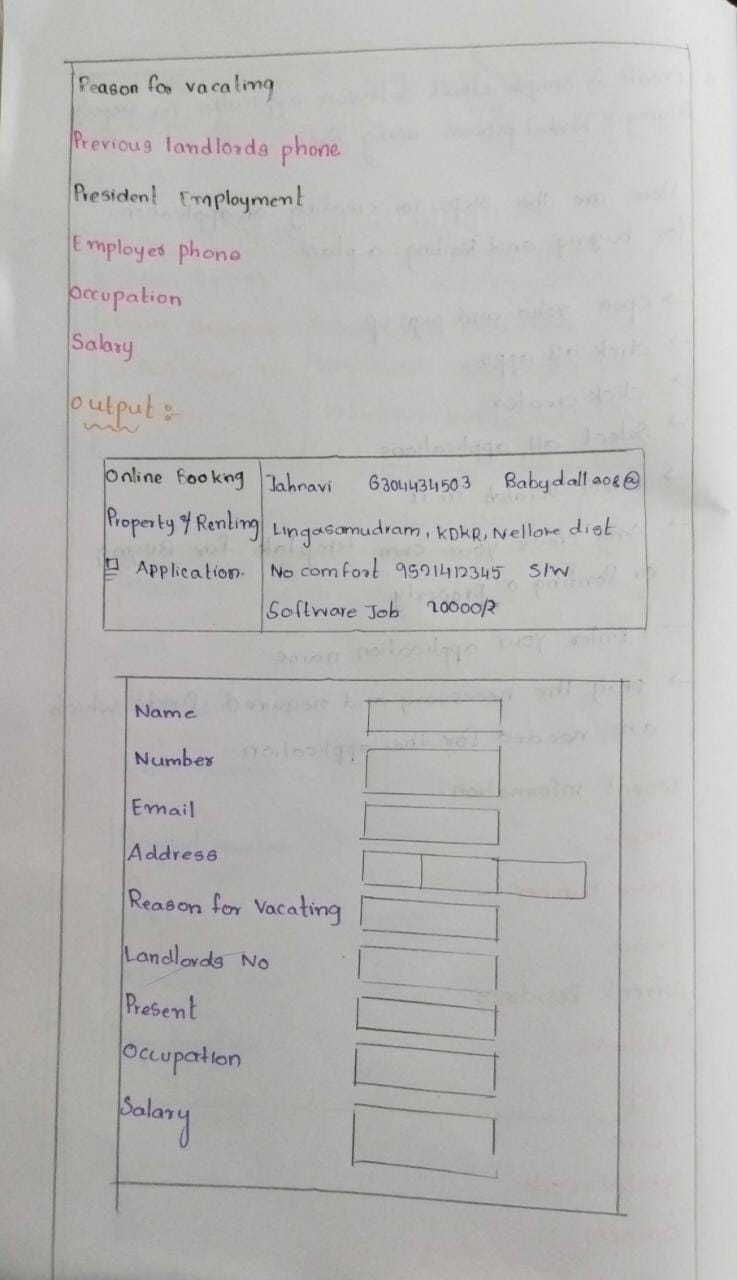 Reason for vacating
Previous landlords phone
President Employment
Employer phone
Occupation
Salary
Output :-
Online Bookng Jahnavi 6304434503 Babydall208@
Property & Renting Lingasamudram, KDKR, Nellore dist
Application. No comfort 9521412345 S/W
Software Job 20000/-
Name
Number
Email
Address
Reason for Vacating
Landlords No
Present
Occupation
Salary